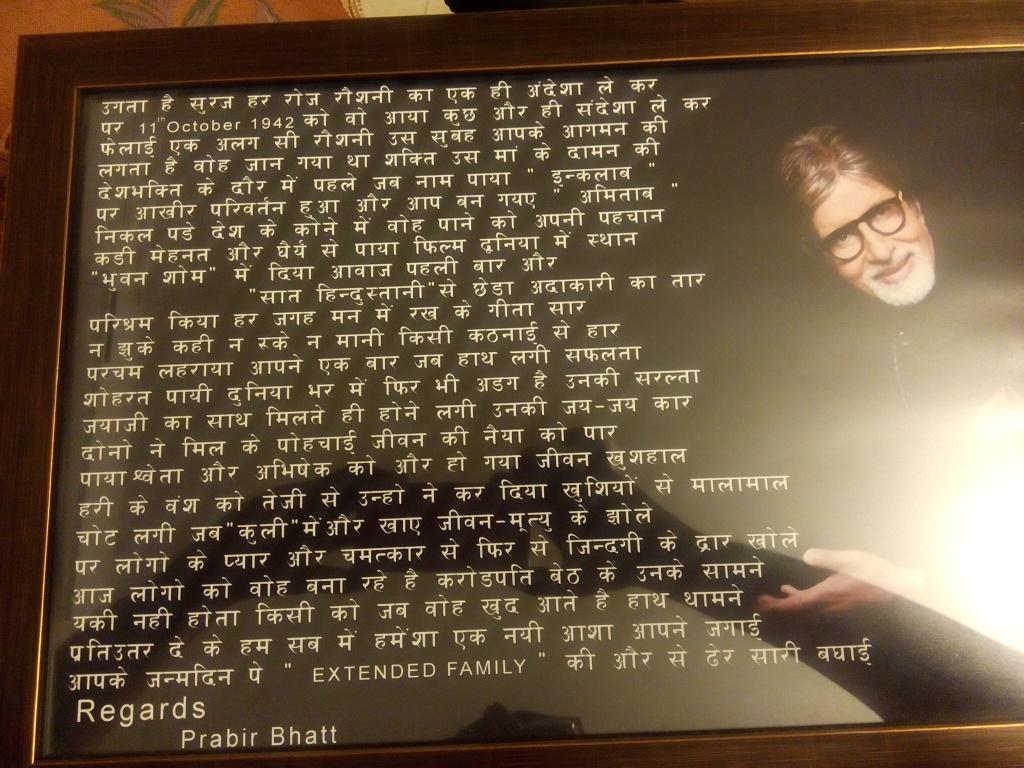 उगता है सुरज हर रोज रौशनी का एक ही अंदेशा ले कर
पर 11th October 1942 को वो आया कुछ और ही संदेशा ले कर
फेलाई एक अलग सी रौशनी उस सुबह आपके आगमन की
लगता है वोह जान गया था शक्ति उस मां के दामन की
देशभक्ति के दौर में पहले जब नाम पाया " इन्कलाब "
पर आखीर परिवर्तन हुआ और आप बन गयए " अमिताब "
निकल पडे देश के कोने में वोह पाने को अपनी पहचान
कडी मेहनत और धैर्य से पाया फिल्म दुनिया में स्थान
"भुवन शोम" में दिया आवाज पहली बार और
"सात हिन्दुस्तानी"से छेडा अदाकारी का तार
परिश्रम किया हर जगह मन में रख के गीता सार
न झुके कही न रुके न मानी किसी कठनाई से हार
परचम लहराया आपने एक बार जब हाथ लगी सफलता
शोहरत पायी दुनिया भर में फिर भी अडग है उनकी सरल्ता
जयाजी का साथ मिलते ही होने लगी उनकी जय-जय कार
दोनो ने मिल के पोहचाई जीवन की नैया को पार
पाया श्वेता और अभिषेक को और हो गया जीवन खुशहाल
हरी के वंश को तेजी से उन्हो ने कर दिया खुशियों से मालामाल
चोट लगी जब"कुली"में और खाए जीवन-मृत्यु के झोले
पर लोगो के प्यार और चमत्कार से फिर से जिन्दगी के द्वार खोले
आज लोगो को वोह बना रहे है करोडपति बेठ के उनके सामने
यकी नही होता किसी को जब वोह खुद आते है हाथ थामने
प्रतिउतर दे के हम सब में हमेंशा एक नयी आशा आपने जगाई
आपके जन्मदिन पे " EXTENDED FAMILY " की और से ढेर सारी बधाई
Regards
Prabir Bhatt